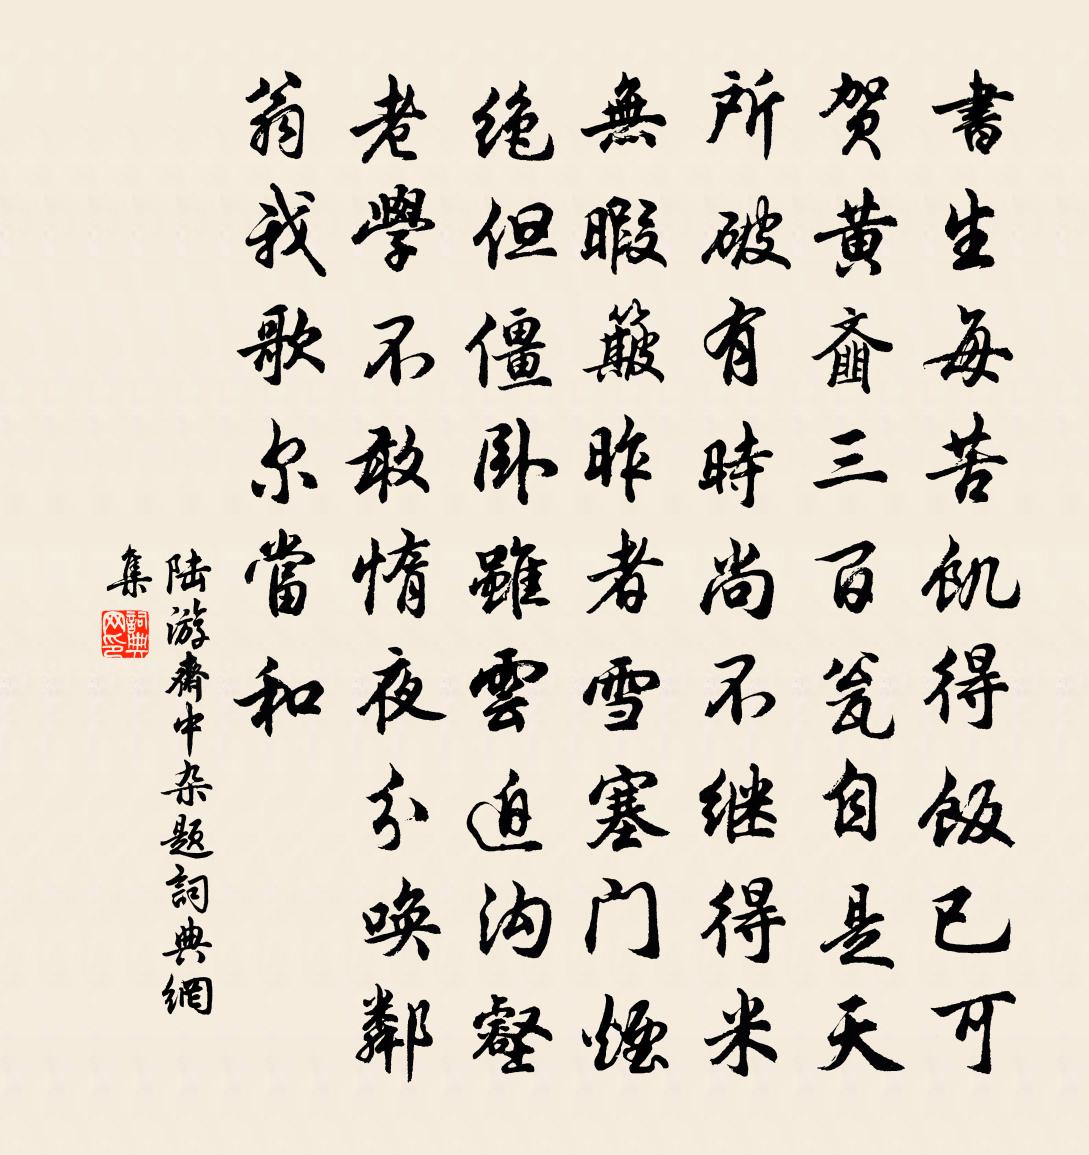 書生每苦飢得飯已可
賀黄齑三百瓮自是天
所破有時尚不继得米
無暇簸昨者雪塞门煙
绝但僵卧雖雲迫沟壑
老學不敢惰夜分唤鄰
翁我歌尔當和
陆游齋中杂题詞典網
集
詞典
网印